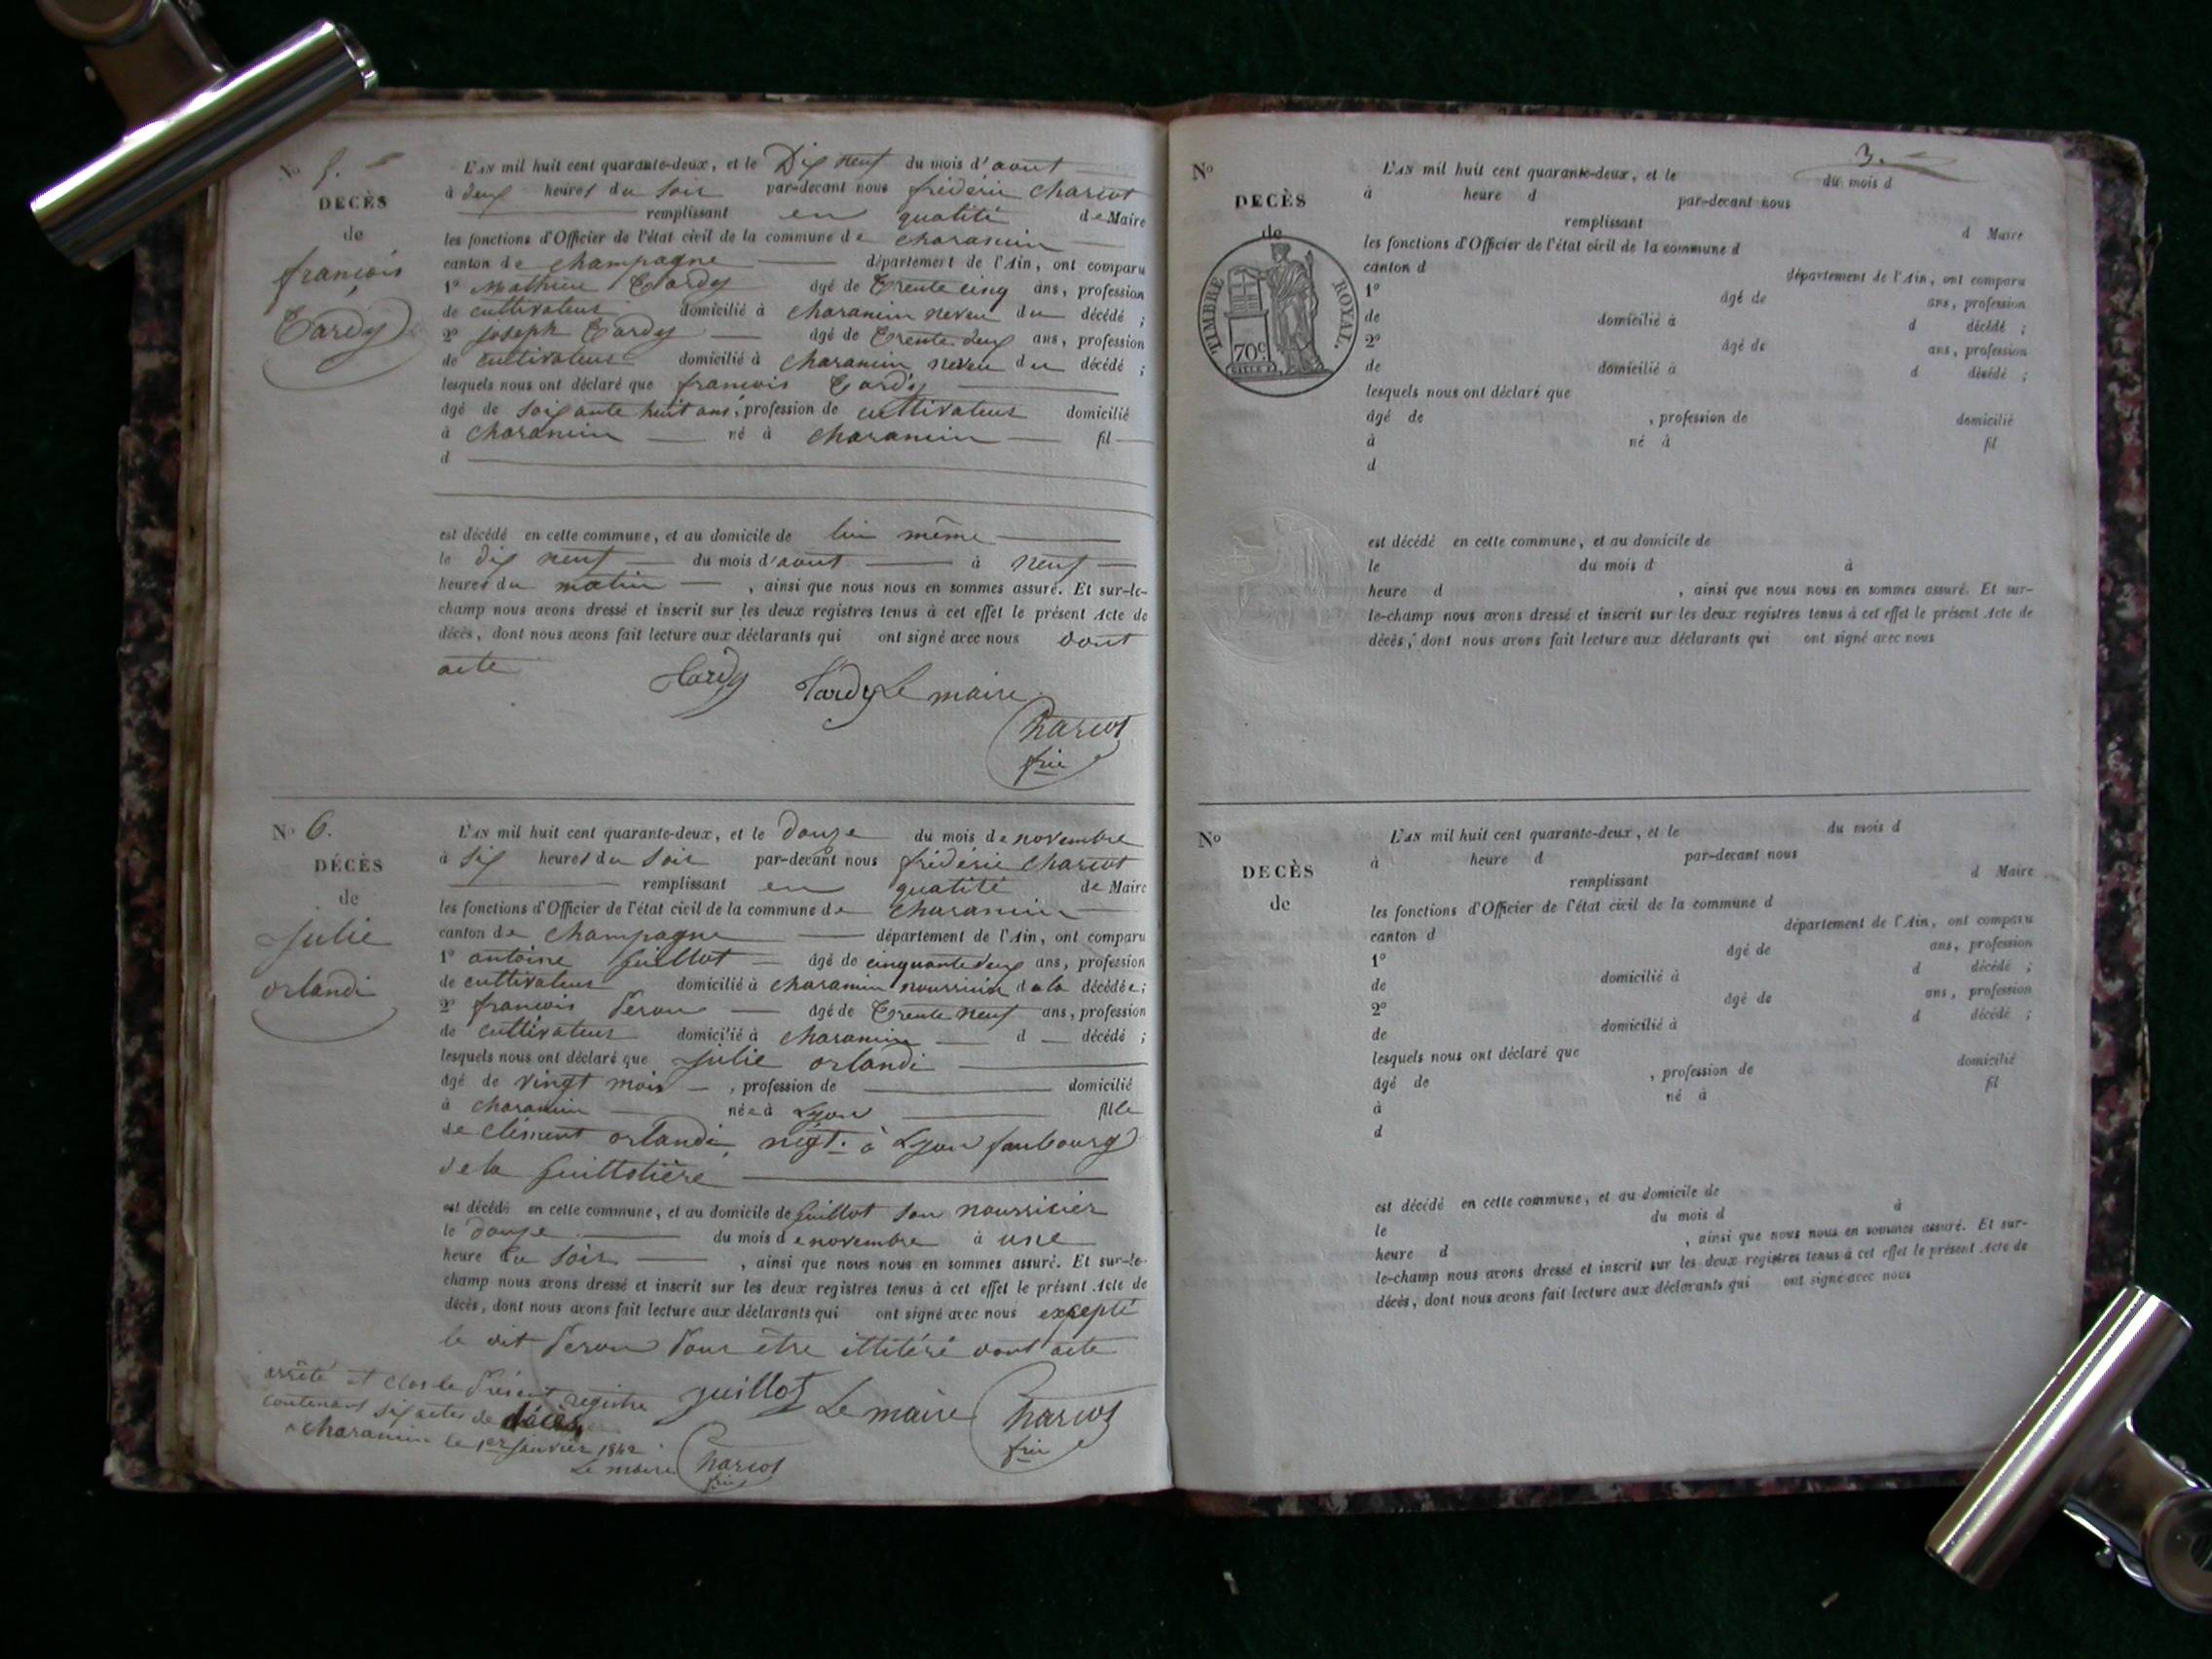 No 5.
DECÈS
de
françois
Tardy
L'AN mil huit cent quarante-deux, et le Dix neuf du mois d'aout
à deux heures du soir par-devant nous frédéric Charcot
remplissant en qualité de Maire
les fonctions d'Officier de l'état civil de la commune de charancin
canton de champagne département de l'Ain, ont comparu
1º Mathieu Tardy âgé de Trente cinq ans, profession
de cultivateur domicilié à charancin neveu du décédé ;
2º joseph Tardy âgé de Trente deux ans, profession
de cultivateur domicilié à charancin neveu du décédé ;
lesquels nous ont déclaré que francois Tardy
âgé de soixante huit ans, profession de cultivateur domicilié
à charancin né à charancin fil
d
est décédé en cette commune, et au domicile de lui même
le dix neuf du mois d'aout à neuf
heures du matin , ainsi que nous nous en sommes assuré. Et sur-le-
champ nous avons dressé et inscrit sur les deux registres tenus à cet effet le présent Acte de
décès, dont nous avons fait lecture aux déclarants qui ont signé avec nous dont
acte
Tardy Tardy Le maire
Charcot
fric
No 6.
DÉCÈS
de
Julie
orlandi
L'AN mil huit cent quarante-deux, et le douze du mois de novembre
à six heures du soir par-devant nous frédéric Charcot
remplissant en qualité de Maire
les fonctions d'Officier de l'état civil de la commune de charancin
canton de champagne département de l'Ain, ont comparu
1º antoine guillot âgé de cinquante deux ans, profession
de cultivateur domicilié à charancin nourricier de la décédée ;
2º francois Peron âgé de Trente neuf ans, profession
de cultivateur domicilié à charancin d décédé ;
lesquels nous ont déclaré que Julie orlandi
âgé de vingt mois , profession de domicilié
à charancin née à Lyon fille
de clément orlandi, négt. à Lyon faubourg
de la guillotière
est décédé en cette commune, et au domicile de guillot son nourricier
le douze du mois de novembre à une
heure du soir , ainsi que nous nous en sommes assuré. Et sur-le-
champ nous avons dressé et inscrit sur les deux registres tenus à cet effet le présent Acte de
décès, dont nous avons fait lecture aux déclarants qui ont signé avec nous excepté
le dit Peron Pour être illitéré dont acte
guillot Le maire Charcot
fric
arrêté et clos le Présent registre
contenant six actes de décès
a charancin le 1er Janvier 1842
Le maire Charcot
fric
3.
No
DECÈS
de
TIMBRE ROYAL.
70c
L'AN mil huit cent quarante-deux, et le du mois d
à heure d par-devant nous
remplissant d Maire
les fonctions d'Officier de l'état civil de la commune d
canton d département de l'Ain, ont comparu
1º âgé de ans, profession
de domicilié à d décédé ;
2º âgé de ans, profession
de domicilié à d décédé ;
lesquels nous ont déclaré que
âgé de , profession de domicilié
à né à fil
d
est décédé en cette commune, et au domicile de
le du mois d à
heure d , ainsi que nous nous en sommes assuré. Et sur-
le-champ nous avons dressé et inscrit sur les deux registres tenus à cet effet le présent Acte de
décès, dont nous avons fait lecture aux déclarants qui ont signé avec nous
No
DECÈS
de
L'AN mil huit cent quarante-deux, et le du mois d
à heure d par-devant nous
remplissant d Maire
les fonctions d'Officier de l'état civil de la commune d
canton d département de l'Ain, ont comparu
1º âgé de ans, profession
de domicilié à d décédé ;
2º âgé de ans, profession
de domicilié à d décédé ;
lesquels nous ont déclaré que
âgé de , profession de domicilié
à né à fil
d
est décédé en cette commune, et au domicile de
le du mois d à
heure d , ainsi que nous nous en sommes assuré. Et sur-
le-champ nous avons dressé et inscrit sur les deux registres tenus à cet effet le présent Acte de
décès, dont nous avons fait lecture aux déclarants qui ont signé avec nous